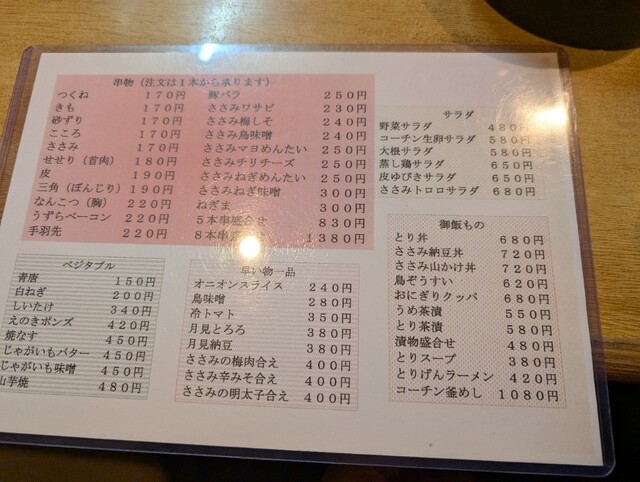 串物（注文は１本から承ります）
つくね　１７０円
きも　１７０円
砂ずり　１７０円
こころ　１７０円
ささみ　１７０円
せせり（首肉）　１８０円
皮　１９０円
三角（ぼんじり）１９０円
なんこつ（胸）　２２０円
うずらベーコン　２２０円
手羽先　２２０円
豚バラ　２５０円
ささみワサビ　２３０円
ささみ梅しそ　２４０円
ささみ鳥味噌　２４０円
ささみマヨめんたい　２５０円
ささみチリチーズ　２５０円
ささみねぎめんたい　２５０円
ささみねぎ味噌　３００円
ねぎま　３００円
５本串盛合せ　８３０円
８本串　１３８０円
サラダ
野菜サラダ　４８０円
コーチン生卵サラダ　５８０円
大根サラダ　５８０円
蒸し鶏サラダ　６５０円
皮ゆびきサラダ　６５０円
ささみトロロサラダ　６８０円
ベジタブル
青唐　１５０円
白ねぎ　２００円
しいたけ　３４０円
えのきポンズ　４２０円
焼なす　４５０円
じゃがいもバター　４５０円
じゃがいも味噌　４５０円
山芋焼　４８０円
早い物一品
オニオンスライス　２４０円
鳥味噌　２８０円
冷トマト　３５０円
月見とろろ　３８０円
月見納豆　３８０円
ささみの梅肉合え　４００円
ささみ辛みそ合え　４００円
ささみの明太子合え　４００円
御飯もの
とり丼　６８０円
ささみ納豆丼　７２０円
ささみ山かけ丼　７２０円
鳥ぞうすい　６２０円
おにぎりクッパ　６８０円
うめ茶漬　５５０円
とり茶漬　５８０円
漬物盛合せ　４８０円
とりスープ　３８０円
とりげんラーメン　４２０円
コーチン釜めし　１０８０円